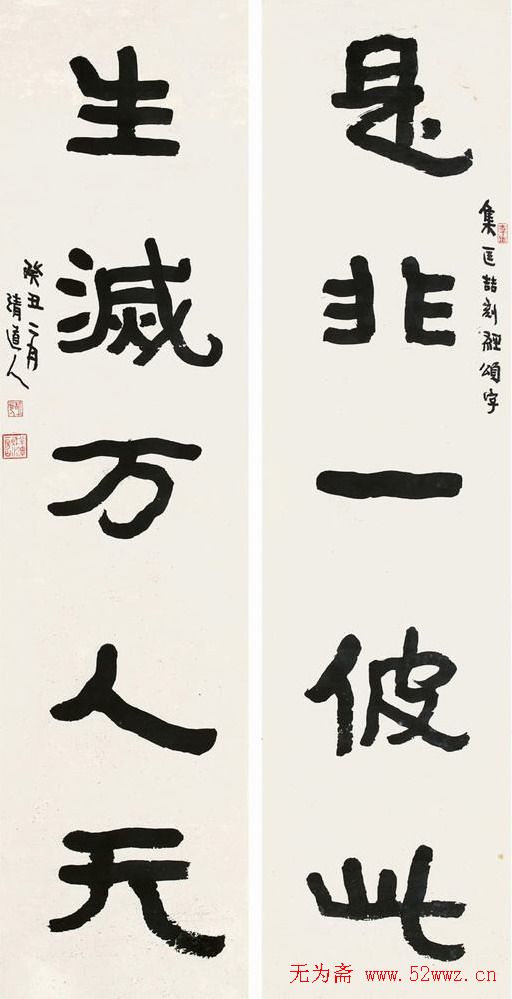 集匡喆刻經頌字
是非一彼此
生滅万人天
癸丑二月
清道人
无为斋 www.52wwz.cn